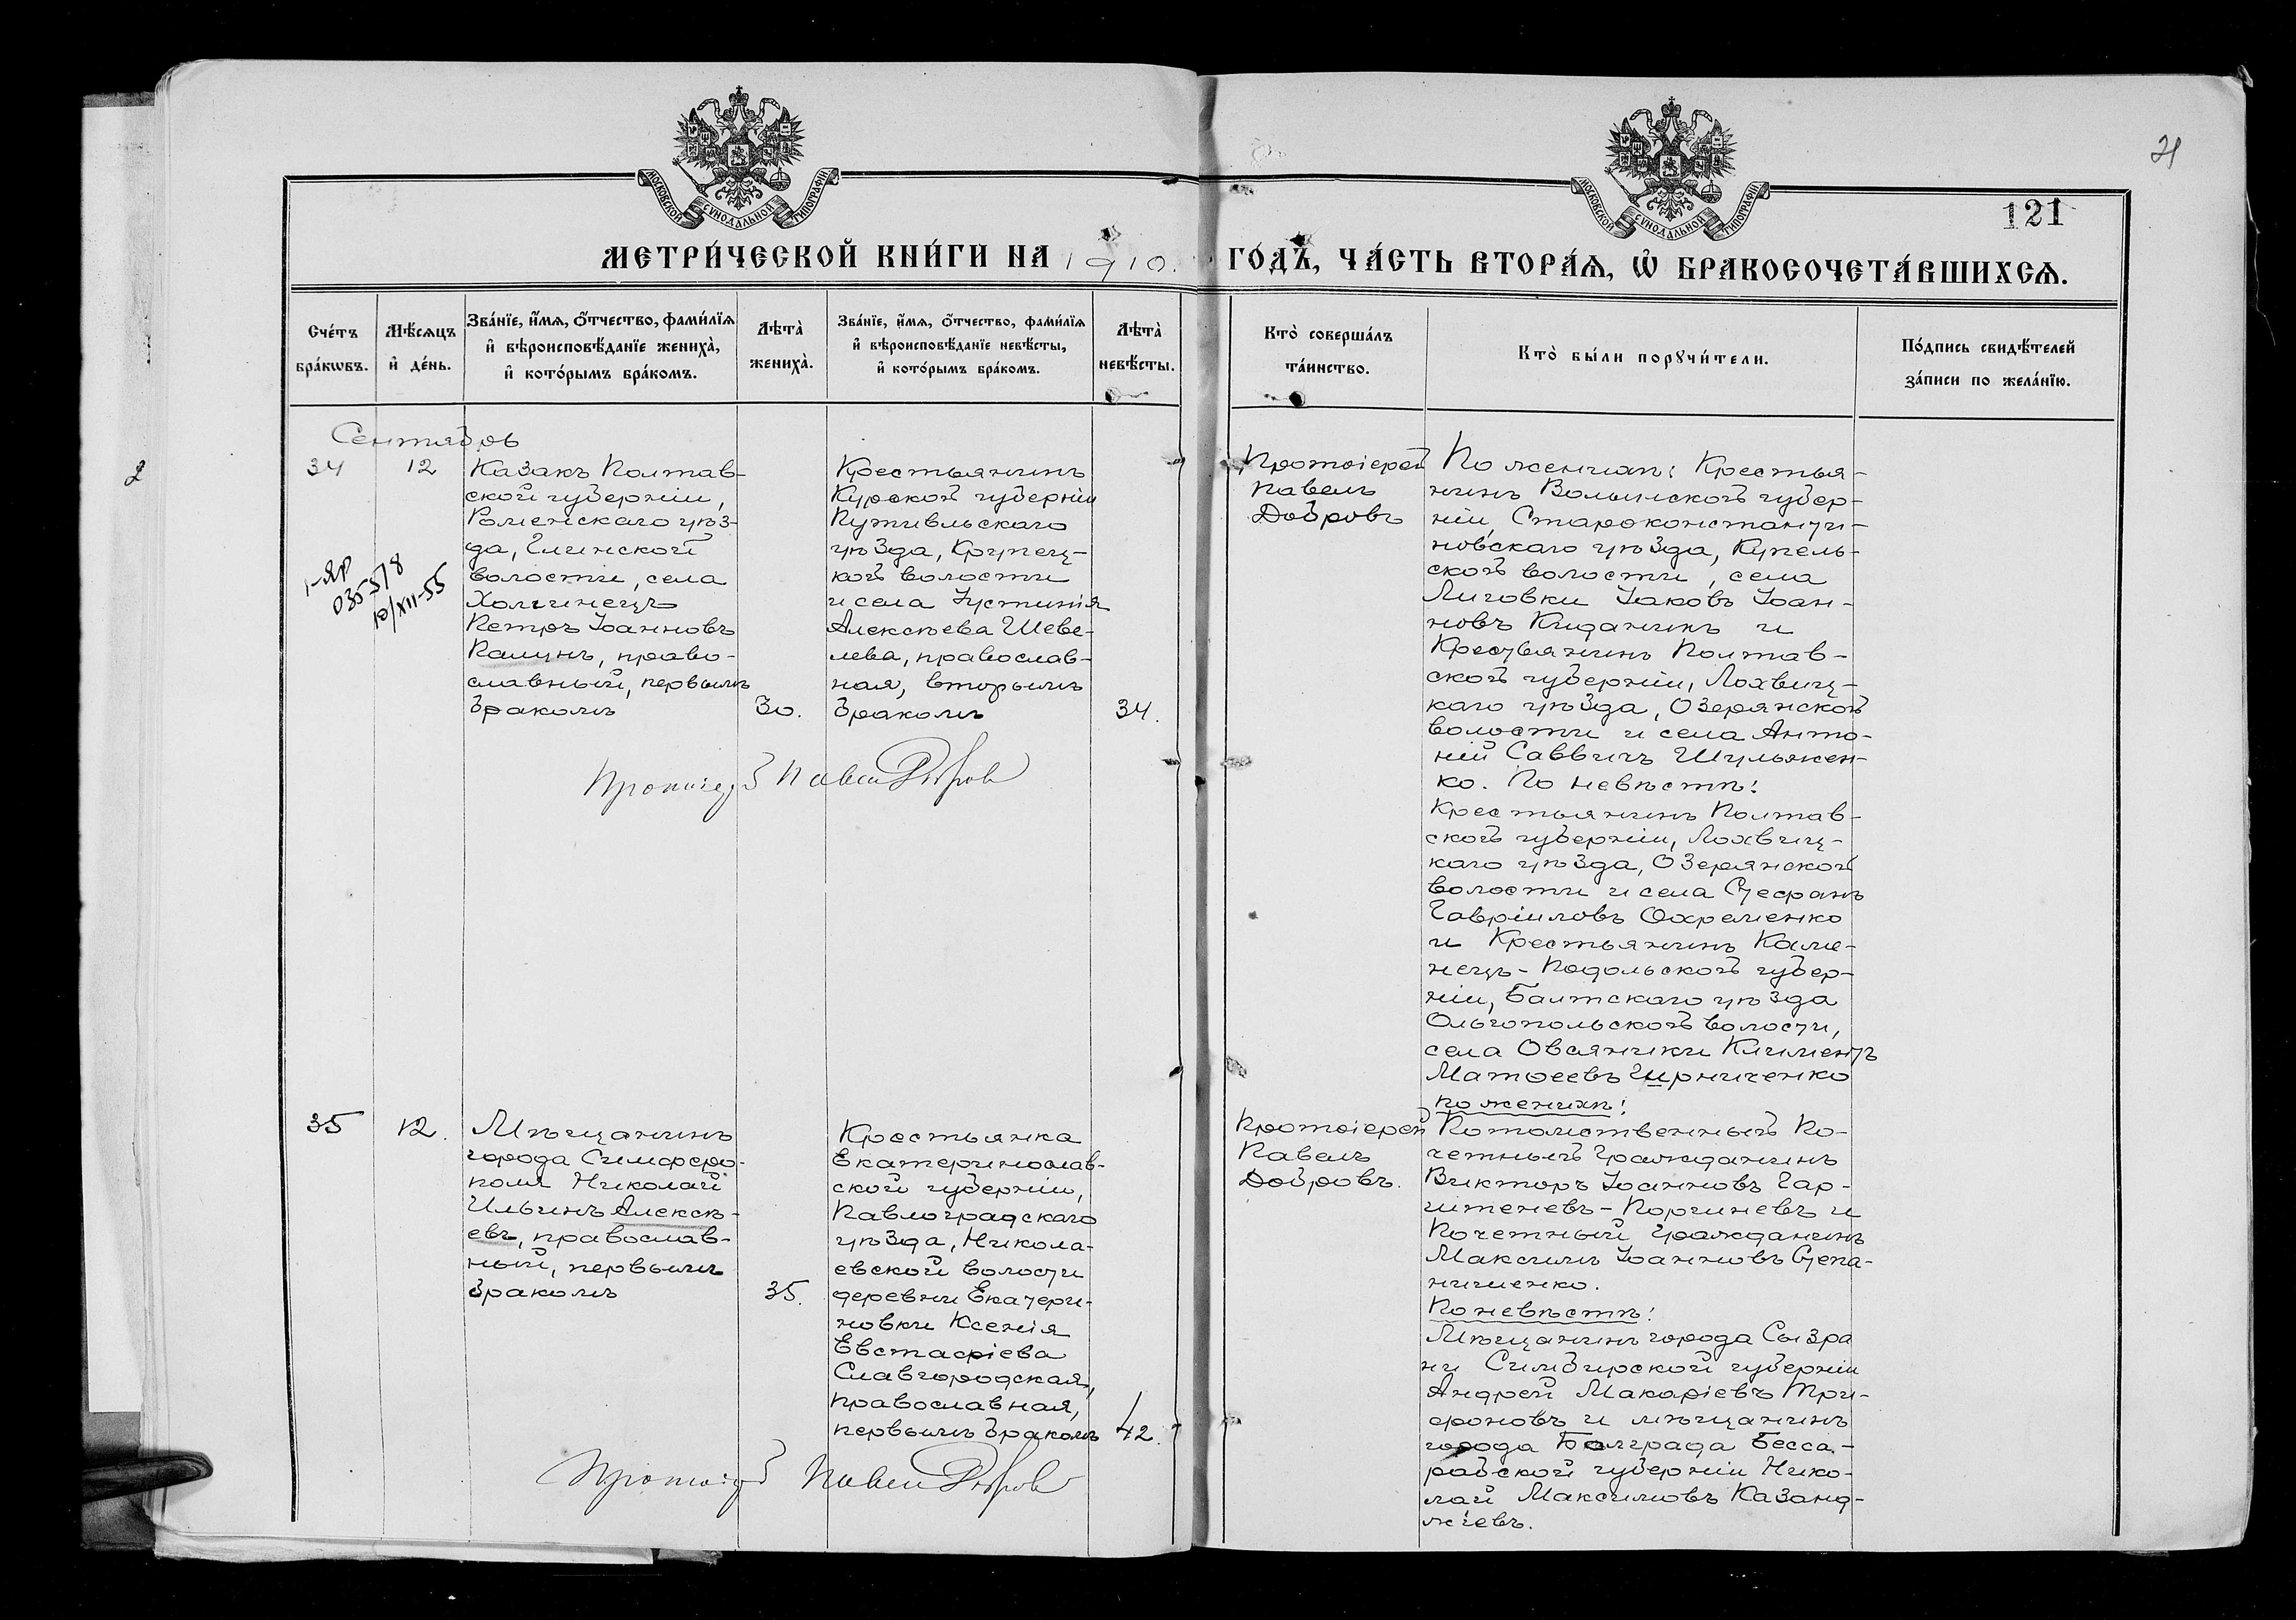 МОСКОВСКОЙ СѴНОДАЛЬНОЙ ТИПОГРАФІИ
МОСКОВСКОЙ СѴНОДАЛЬНОЙ ТИПОГРАФІИ
121
МЕТРИ́ЧЕСКОЙ КНИ́ГИ НА 1910. ГО́ДЪ, ЧА́СТЬ ВТОРА́Я, Ѽ БРАКОСОЧЕТА́ВШИХСЯ.
Сче́тъ бра́кѡвъ.
Мѣ́сяцъ и҆ де́нь.
Зва́нїе, и҆́мя, ѻ҆́тчество, фами́лїя и҆ вѣроисповѣ́данїе жениха̀, и҆ кото́рымъ бра́комъ.
Лѣта̀ жениха̀.
Зва́нїе, и҆́мя, ѻ҆́тчество, фами́лїя и҆ вѣроисповѣ́данїе невѣ́сты, и҆ кото́рымъ бра́комъ.
Лѣта̀ невѣ́сты.
Кто̀ соверша́лъ та́инство.
Кто̀ бы́ли порꙋчи́тели.
По́дпись свидѣ́телей за́писи по жела́нїю.
Сентябрь
34
12
Казакъ Полтав-
ской губерніи,
Роменскаго уѣз-
да, Глинской
волости, села
Холминецъ
Петръ Іоанновъ
Калунъ, право-
славный, первымъ
бракомъ
30.
Крестьянинъ
Курской губерніи
Путивльскаго
уѣзда, Крупец-
кой волости
и села Іустинія
Алексѣева Шеве-
лева, православ-
ная, вторымъ
бракомъ
34.
1-ЯР
035578
10/XII-55
Протоіерей Павелъ Добровъ
Протоіерей
Павелъ
Добровъ
По женихѣ: Крестья-
нинъ Волынской губер-
ніи, Староконстанти-
новскаго уѣзда, Купель-
ской волости, села
Лиговки Іаковъ Іоан-
новъ Киданикъ и
Крестьянинъ Полтав-
ской губерніи, Лохвиц-
каго уѣзда, Озерянской
волости и села Анто-
ній Саввичъ Шульжен-
ко. По невѣстѣ:
Крестьянинъ Полтав-
ской губерніи, Лохвиц-
каго уѣзда, Озерянской
волости и села Стефанъ
Гавріиловъ Охременко
и Крестьянинъ Каме-
нецъ-Подольской губер-
ніи, Балтскаго уѣзда
Ольгопольской волости,
села Овсяники Климентъ
Матѳеевъ Гирниченко
35
12.
Мѣщанинъ
города Симферо-
поля Николай
Ильинъ Алексѣ-
евъ, православ-
ный, первымъ
бракомъ
35.
Крестьянка
Екатеринослав-
ской губерніи,
Павлоградскаго
уѣзда, Никола-
евской волости
деревни Екатери-
новки Ксенія
Евстафіева
Славгородская,
православная,
первымъ бракомъ
42.
Протоіерей Павелъ Добровъ
Протоіерей
Павелъ
Добровъ.
по женихѣ:
Потомственный По-
четный Гражданинъ
Викторъ Іоанновъ Гар-
шеневъ-Поршневъ и
Почетный Гражданинъ
Максимъ Іоанновъ Степа-
ниченко.
По невѣстѣ:
Мѣщанинъ города Сызра
ни Симбирской губерніи
Андрей Макаріевъ Три-
фоновъ и мѣщанинъ
города Болграда Бесса-
рабской губерніи Нико-
лай Максимовъ Казанд-
жіевъ.